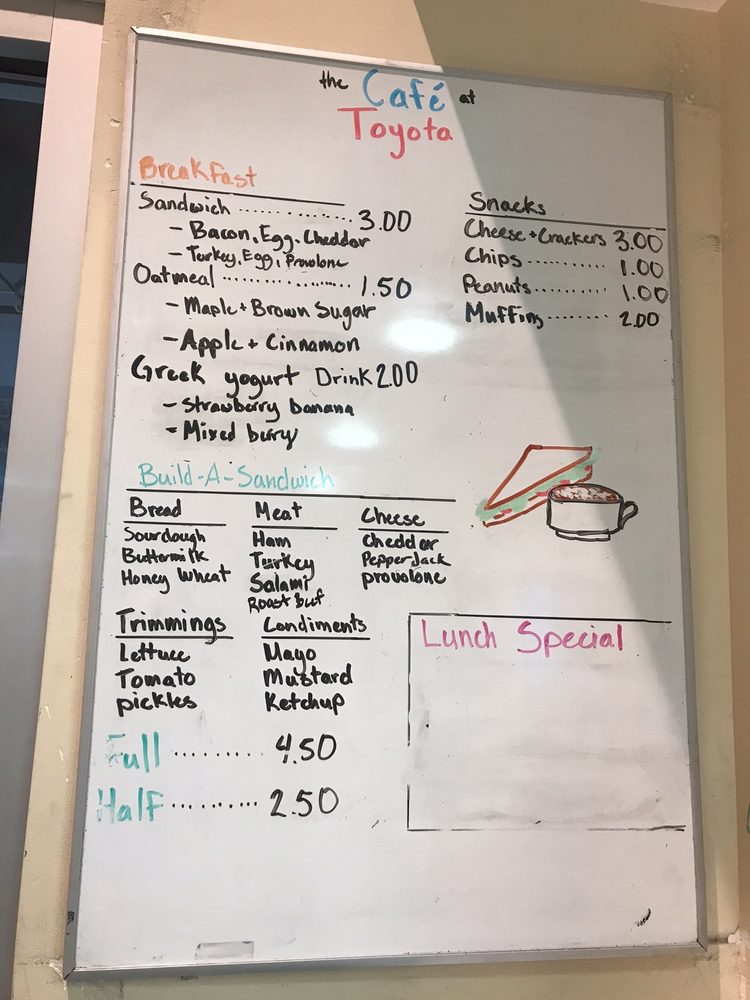 the Café at
Toyota
Breakfast
Sandwich .............. 3.00
- Bacon, Egg, Cheddar
- Turkey, Egg, Provolone
Oatmeal .................. 1.50
- Maple + Brown Sugar
- Apple + Cinnamon
Greek yogurt Drink 2.00
- Strawberry banana
- Mixed berry
Snacks
Cheese + Crackers 3.00
Chips .......... 1.00
Peanuts .......... 1.00
Muffins ........ 2.00
Build-A-Sandwich
Bread
Sourdough
Buttermilk
Honey Wheat
Meat
Ham
Turkey
Salami
Roast beef
Cheese
Cheddar
Pepper Jack
provolone
Trimmings
Lettuce
Tomato
pickles
Condiments
Mayo
Mustard
Ketchup
Full ......... 4.50
Half .......... 2.50
Lunch Special